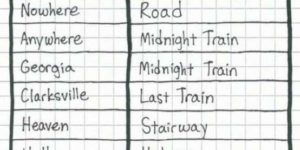 Nowhere Road
Anywhere Midnight Train
Georgia Midnight Train
Clarksville Last Train
Heaven Stairway